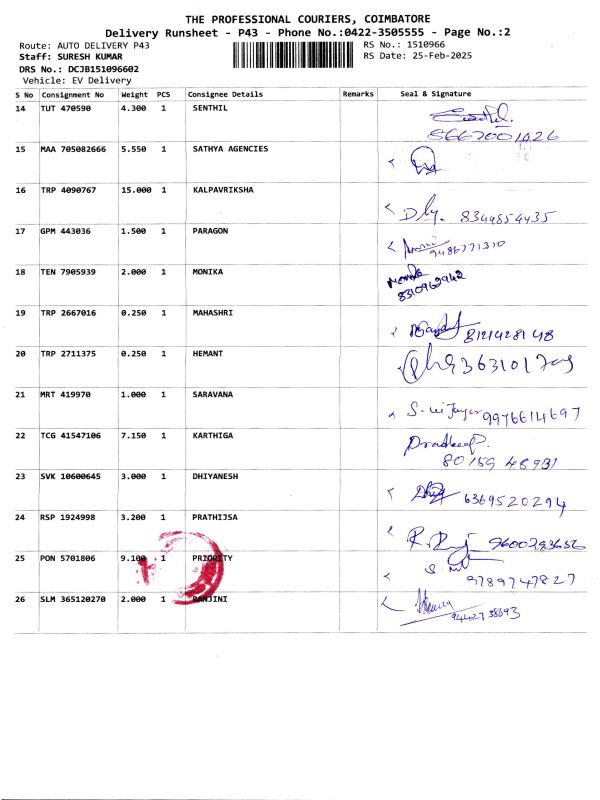 THE PROFESSIONAL COURIERS, COIMBATORE
Delivery Runsheet - P43 - Phone No.:0422-3505555 - Page No.:2
Route: AUTO DELIVERY P43
RS No.: 1510966
Staff: SURESH KUMAR
RS Date: 25-Feb-2025
DRS No.: DCJB151096602
Vehicle: EV Delivery
S No Consignment No Weight PCS Consignee Details Remarks Seal & Signature
14 TUT 470590 4.300 1 SENTHIL
5667001426
15 MAA 705082666 5.550 1 SATHYA AGENCIES
16 TRP 4090767 15.000 1 KALPAVRIKSHA
8344854435
17 GPM 443036 1.500 1 PARAGON
9486771310
18 TEN 7905939 2.000 1 MONIKA
8310962942
19 TRP 2667016 0.250 1 MAHASHRI
8121428148
20 TRP 2711375 0.250 1 HEMANT
21 MRT 419970 1.000 1 SARAVANA
9976614697
22 TCG 41547106 7.150 1 KARTHIGA
Pradeep.
80159 48931
23 SVK 10600645 3.000 1 DHIYANESH
6369520294
24 RSP 1924998 3.200 1 PRATHIJSA
9600293656
25 PON 5701806 9.100 1 PRIORITY
9789747827
26 SLM 365120270 2.000 1 RANJINI
9442738693